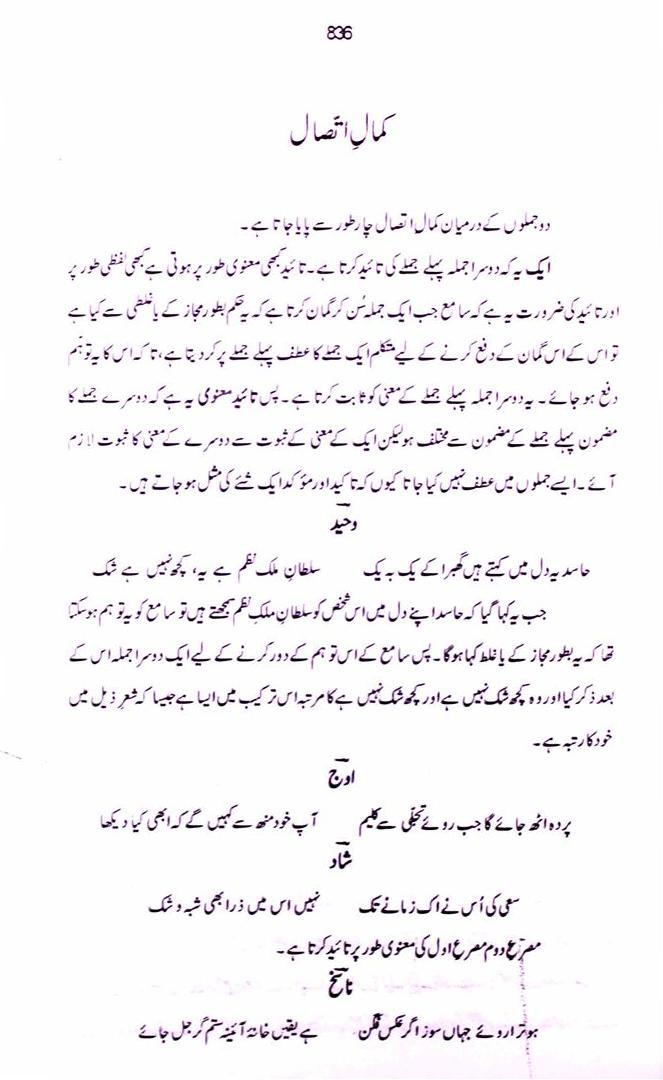 836
کمالِ اتّصال
دو جملوں کے درمیان کمالِ اتصال چار طور سے پایا جاتا ہے۔
ایک یہ کہ دوسرا جملہ پہلے جملے کی تائید کرتا ہے۔ تائید کبھی معنوی طور پر ہوتی ہے کبھی لفظی طور پر
اور تائید کی ضرورت یہ ہے کہ سامع جب ایک جملہ سُن کر گمان کرتا ہے کہ یہ حکم بطور مجاز کے یا غلطی سے کیا ہے
تو اس کے اس گمان کے دفع کرنے کے لیے متکلم ایک جملے کا عطف پہلے جملے پر کر دیتا ہے، تاکہ اس کا یہ توہّم
دفع ہو جائے۔ یہ دوسرا جملہ پہلے جملے کے معنی کو ثابت کرتا ہے۔ پس تائید معنوی یہ ہے کہ دوسرے جملے کا
مضمون پہلے جملے کے مضمون سے مختلف ہو لیکن ایک کے معنی کے ثبوت سے دوسرے کے معنی کا ثبوت لازم
آئے۔ ایسے جملوں میں عطف نہیں کیا جاتا کیوں کہ تاکید اور مؤکد ایک شئے کی مثل ہو جاتے ہیں۔
وحید
حاسد یہ دل میں کہتے ہیں گھبرا کے یک بہ یک سلطانِ ملک نظم ہے یہ، کچھ نہیں ہے شک
جب یہ کہا گیا کہ حاسد اپنے دل میں اس شخص کو سلطانِ ملکِ نظم سمجھتے ہیں تو سامع کو یہ توہم ہو سکتا
تھا کہ یہ بطور مجاز کے یا غلط کہا ہوگا۔ پس سامع کے اس توہم کے دور کرنے کے لیے ایک دوسرا جملہ اس کے
بعد ذکر کیا اور وہ کچھ شک نہیں ہے اور کچھ شک نہیں ہے کا مرتبہ اس ترکیب میں ایسا ہے جیسا کہ شعرِ ذیل میں
خود کا رتبہ ہے۔
اوج
پردہ اٹھ جائے گا جب روئے تجلّی سے کلیم آپ خود منھ سے کہیں گے کہ ابھی کیا دیکھا
شاد
سعی کی اُس نے اک زمانے تک نہیں اس میں ذرا بھی شبہ و شک
مصرع دوم مصرع اول کی معنوی طور پر تائید کرتا ہے۔
ناسخ
ہو ترا روئے جہاں سوز اگر عکس فگن ہے یقیں خانۂ آئینہ ستم گر جل جائے